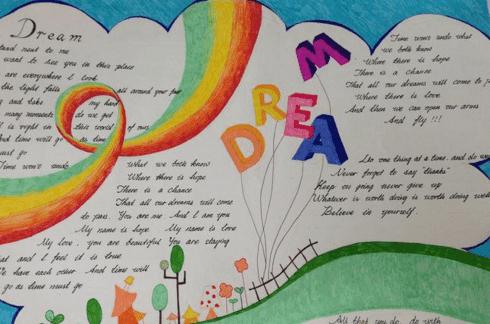 Dream
stand next to me
want to see you in this place
are everywhere I look
the light falls all around your face
and take my hand
many moments do we get
is right in this world of ours
And time will go as time
must go
Time won't undo
What we both know
Where there is hope
There is a chance
That all our dreams will come
to pass. You are me. And I am you
My name is hope. My name is love
My love, you are beautiful. You are staying
and I feel it is true
We have each other. And time will
go as time must go
DREAM
Time won't undo what
we both know
Where there is hope
There is a chance
That all our dreams will come to
Where there is love
And then we can open our arms
And fly !!!
Do one thing at a time, and do
Never forget to say "thanks"
Keep on going never give up
Whatever is worth doing is worth doing well
Believe in yourself.
All that you do, do with